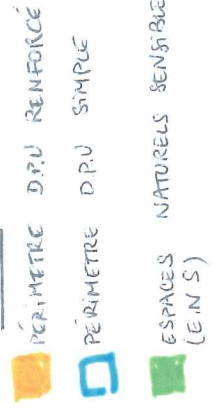 PÉRIMETRE D.P.U RENFORCÉ
PÉRIMETRE D.P.U SIMPLE
ESPACES NATURELS SENSIBLE
(E.N.S)